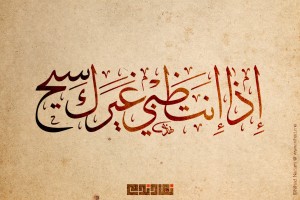 إِذَا إِنتَ ظَبْي غَيرَك سيح